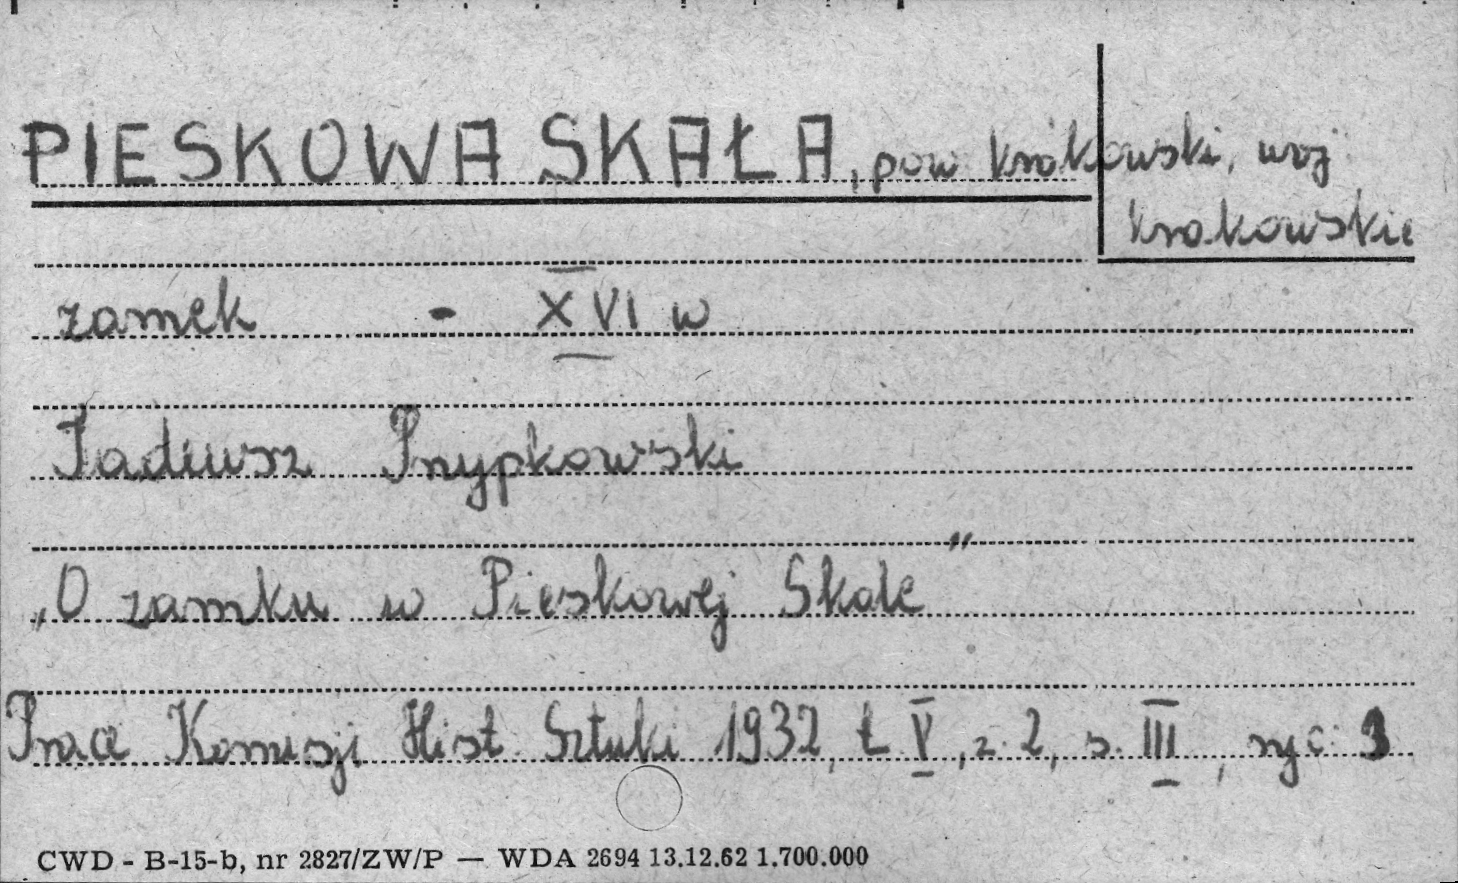 PIESKOWA SKAŁA, pow krakowski, woj
krakowskie
zamek - XVI w
Tadeusz Przypkowski
„O zamku w Pieskowej Skale”
Prace Komisji Hist. Sztuki 1932, t V, z. 2, s. III, ryc.
CWD - B-15-b, nr 2827/ZW/P — WDA 2694 13.12.62 1.700.000